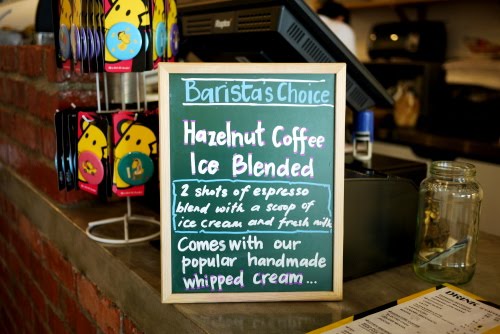 Barista's Choice
Hazelnut Coffee
Ice Blended
2 shots of espresso
blend with a scoop of
ice cream and fresh milk
Comes with our
popular handmade
whipped cream...
DRINK